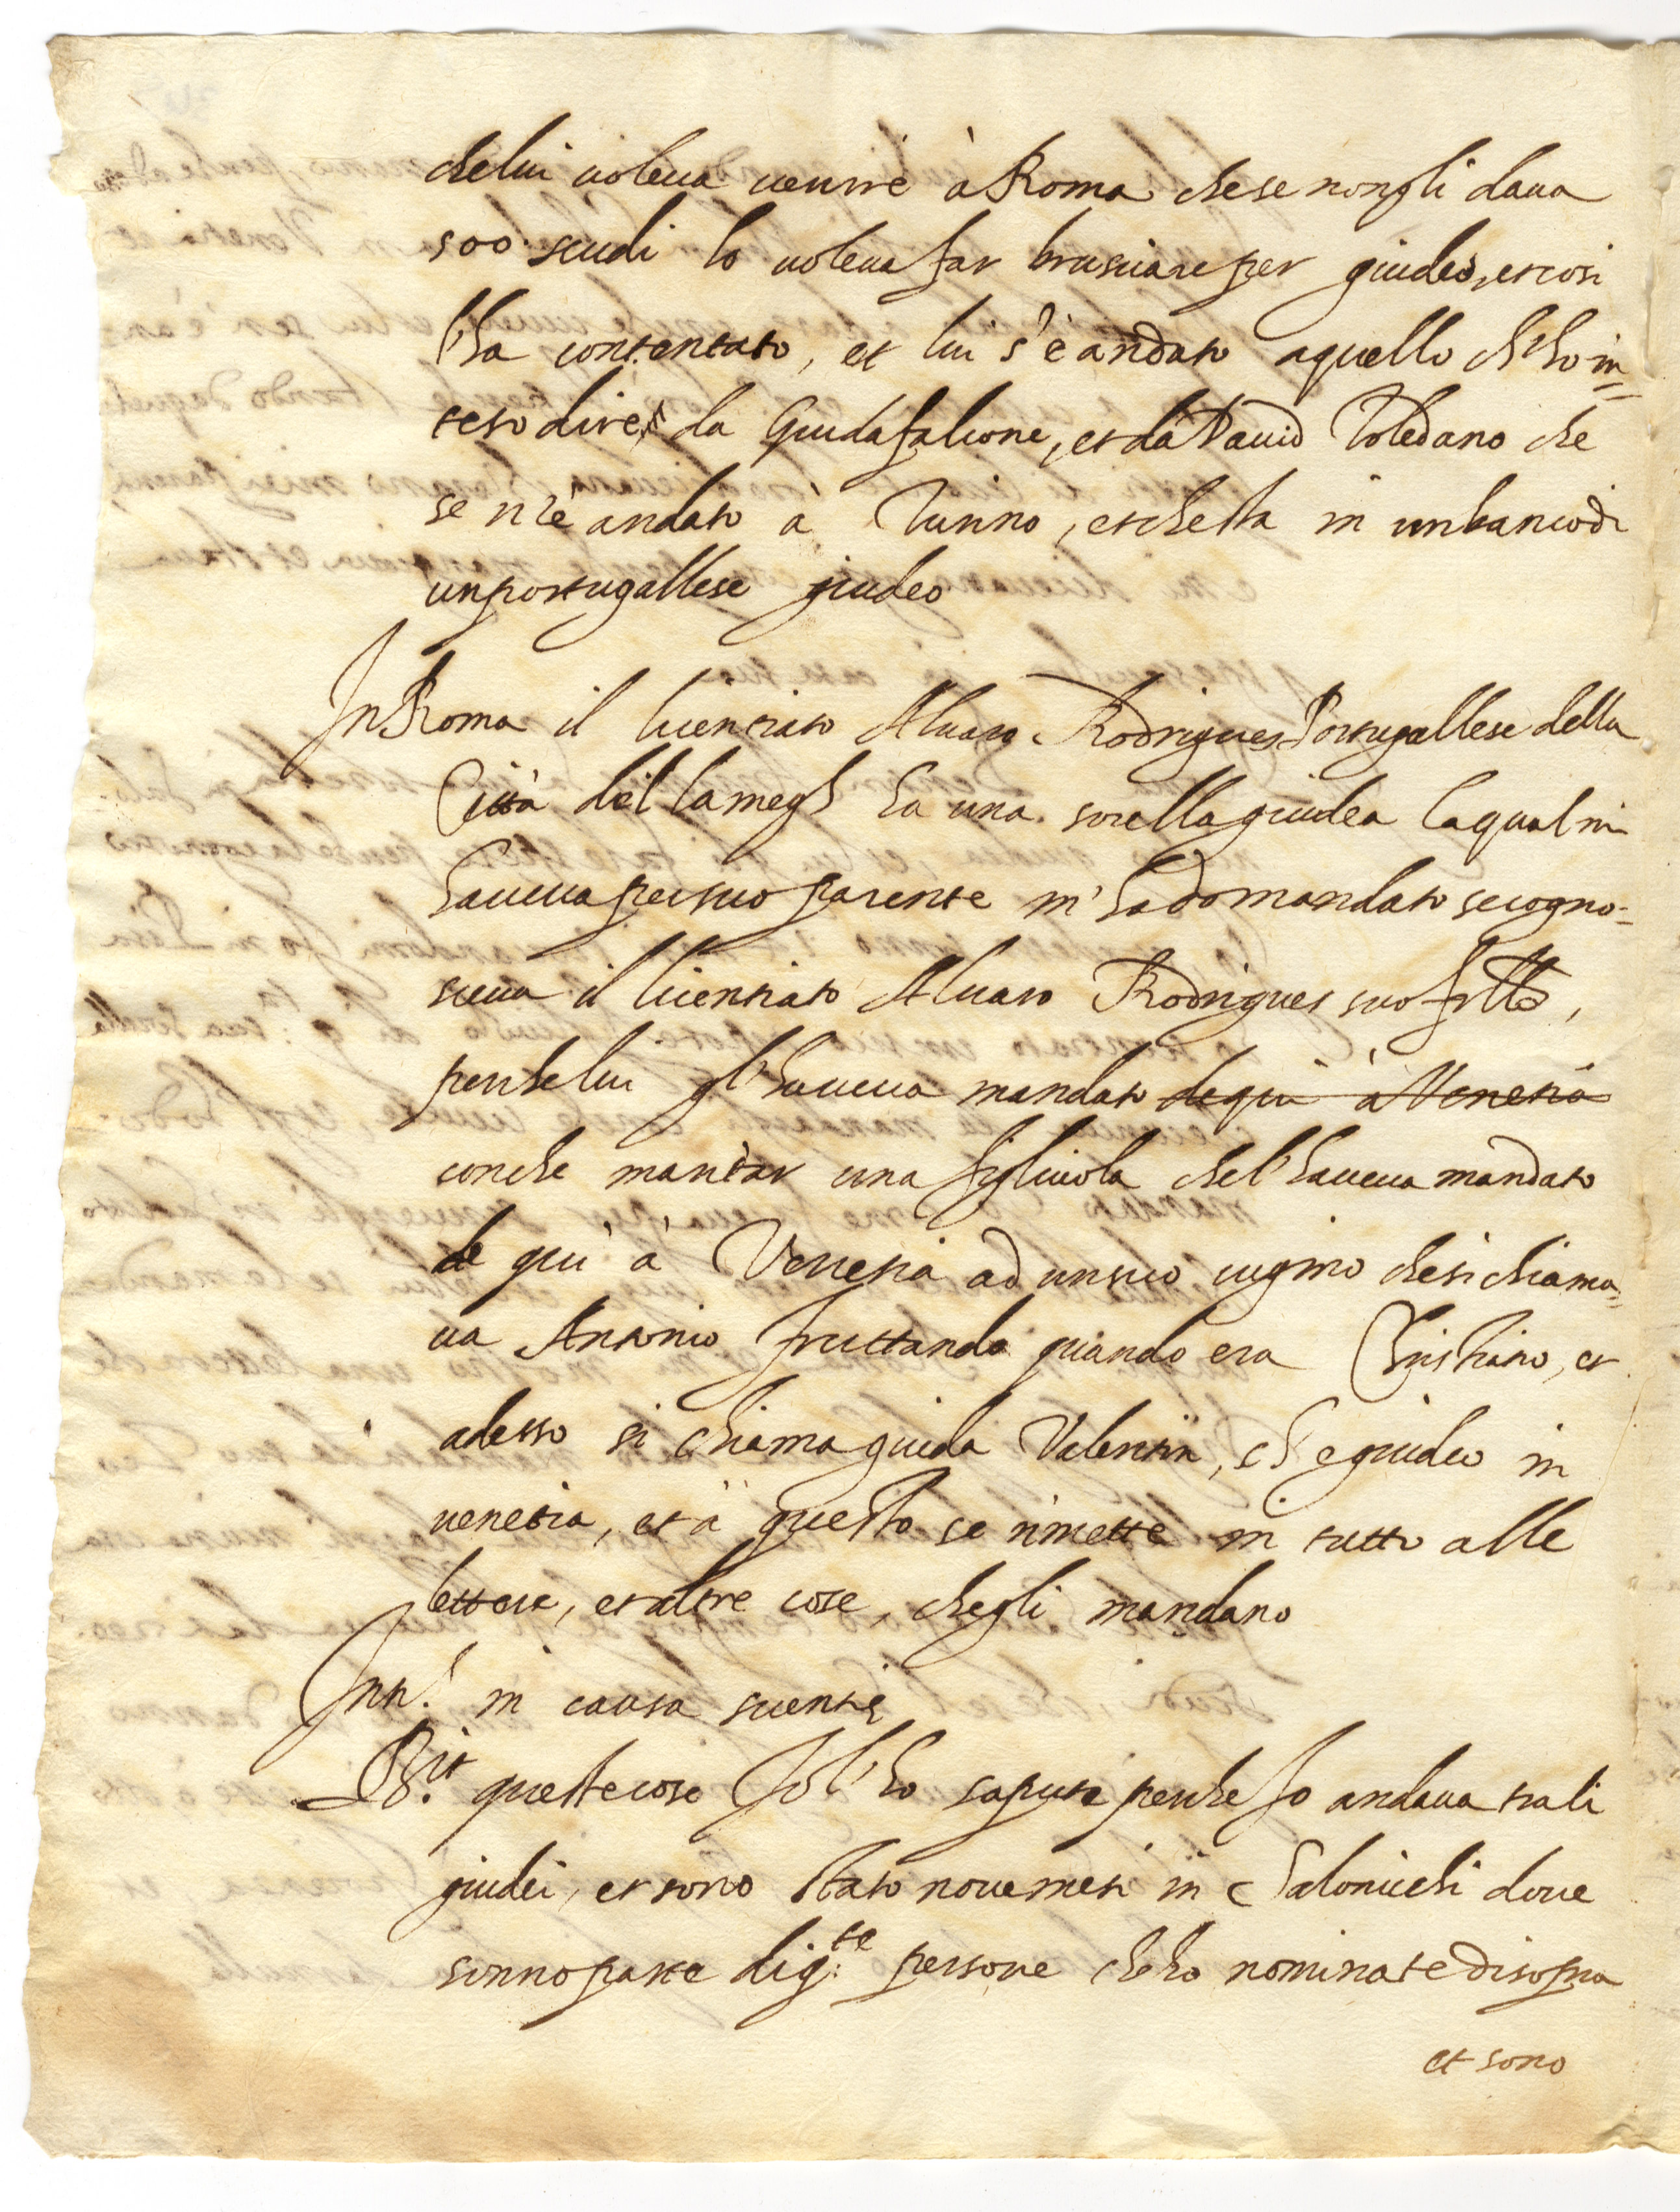 che lui voleua venire à Roma che se non gli daua
500 scudi lo uoleua far brusciare per giudeo, et cosi
l'ha contentato, et lui s'è andato a quello ch'ho in=
teso dire da Giuda falcone, et da Dauid Toledano che
se n'è andato à Turino, et che sta in un banco di
un portugallese giudeo
In Roma il licentiato Aluaro Rodrigues Portugallese della
Città del Lamegh ha una sorella giudea la qual mi
haueua per suo parente m'ha domandato se cogno=
sceua il licentiato Aluaro Rodrigues suo frello,
perche lui gl'haueua mandato de qui à Venetia
con che maritar una figliuola che l'haueua mandato
de qui à Venetia ad un suo cugino che si chiama=
ua Antonio fruttando quando era Christiano, et
adesso si chiama giuda Valentin, ch'è giudeo in
venetia, et à questo se rimette in tutto alle
lettere, et altre cose, che gli mandano
Int.s in causa scientiæ
R.it queste cose Io l'ho sapute perche Io andaua tra li
giudei, et sono stato noue mesi in Salonichi doue
sonno parte di q.te persone ch'ho nominate di sopra
et sono